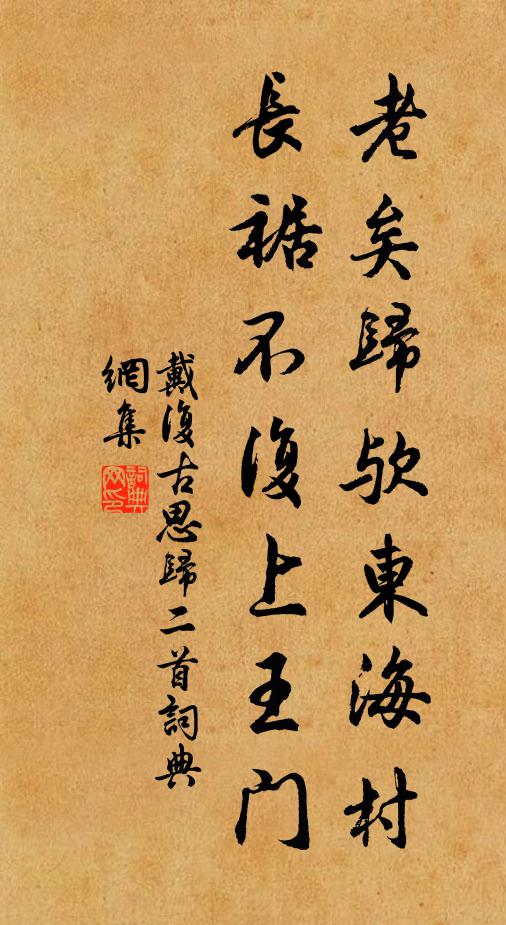 老矣歸欤東海村
長裾不復上王門
戴復古思歸二首詞典
網集
詞典
网印